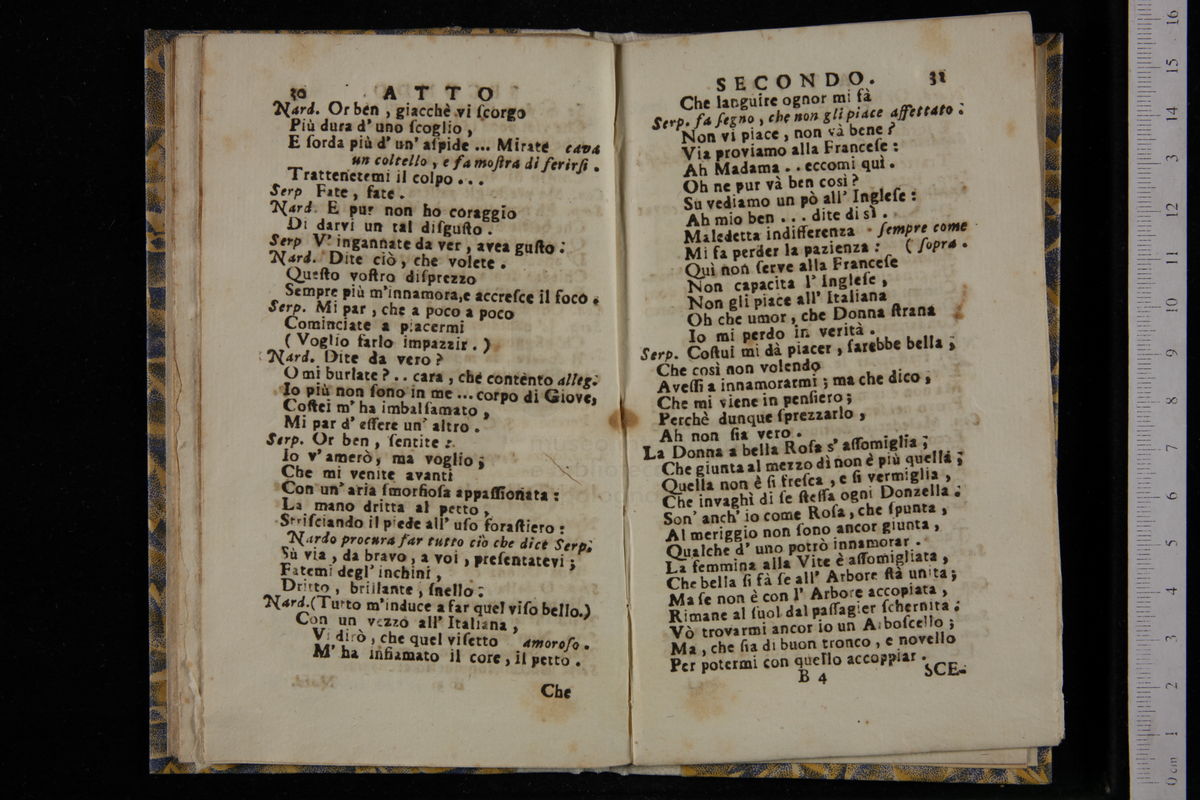 30 ATTO
Nard. Or ben , giacchè vi ſcorgo
Più dura d' uno ſcoglio ,
E ſorda più d' un' aſpide ... Mirate cava
un coltello , e fa moſtra di ferirſi .
Trattenetemi il colpo . . .
Serp Fate , fate .
Nard. E pur non ho coraggio
Di darvi un tal diſguſto .
Serp V' ingannate da ver , avea guſto :
Nard. Dite ciò , che volete .
Queſto voſtro diſprezzo
Sempre più m'innamora,e accreſce il foco .
Serp. Mi par , che a poco a poco
Cominciate a piacermi
( Voglio farlo impazzir . )
Nard. Dite da vero ?
O mi burlate ? . . cara , che contento alleg.
Io più non ſono in me ... corpo di Giove,
Coſtei m' ha imbalſamato ,
Mi par d' eſſere un' altro .
Serp. Or ben , ſentite :
Io v' amerò , ma voglio ;
Che mi venite avanti
Con un' aria ſmorfioſa appaſſionata :
La mano dritta al petto ,
Striſciando il piede all' uſo foraſtiero :
Nardo procura far tutto ciò che dice Serp.
Sù via , da bravo , a voi , preſentatevi ;
Fatemi degl' inchini ,
Dritto , brillante , ſnello :
Nard.(Tutto m'induce a far quel viſo bello.)
Con un vezzo all' Italiana ,
Vi dirò , che quel viſetto amoroſo .
M' ha infiamato il core , il petto .
Che
SECONDO. 31
Che languire ognor mi fà
Serp. fa ſegno , che non gli piace affettato :
Non vi piace , non và bene ?
Via proviamo alla Franceſe :
Ah Madama . . eccomi quì .
Oh ne pur và ben così ?
Su vediamo un pò all' Ingleſe :
Ah mio ben . . . dite di sì .
Maledetta indifferenza ſempre come
Mi fa perder la pazienza : ( ſopra .
Quì non ſerve alla Franceſe
Non capacita l' Ingleſe ,
Non gli piace all' Italiana
Oh che umor , che Donna ſtrana
Io mi perdo in verità .
Serp. Coſtui mi dà piacer , ſarebbe bella ;
Che così non volendo
Aveſſi a innamorarmi ; ma che dico ,
Che mi viene in penſiero ;
Perchè dunque ſprezzarlo ,
Ah non ſia vero .
La Donna a bella Roſa s' aſſomiglia ;
Che giunta al mezzo dì non è più quella ;
Quella non è ſi freſca , e ſi vermiglia ,
Che invaghì di ſe ſteſſa ogni Donzella .
Son' anch' io come Roſa , che ſpunta ,
Al meriggio non ſono ancor giunta ,
Qualche d' uno potrò innamorar .
La femmina alla Vite è aſſomigliata ,
Che bella ſi fà ſe all' Arbore ſtà unita ;
Ma ſe non è con l' Arbore accopiata ,
Rimane al ſuol dal paſſagier ſchernita .
Vò trovarmi ancor io un Arboſcello ;
Ma , che ſia di buon tronco , e novello
Per potermi con quello accoppiar .
B 4 SCE-